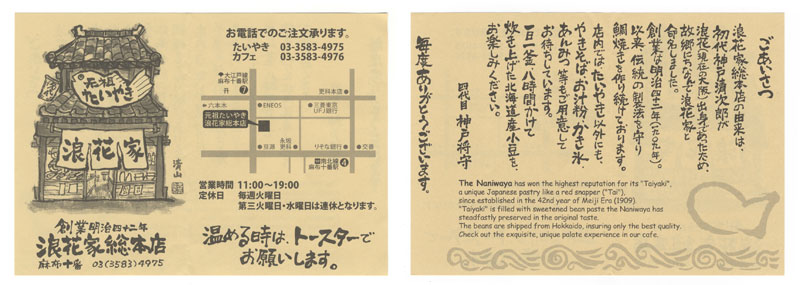 元祖
たいやき
浪花家
清山
創業明治四十二年
浪花家総本店
麻布十番 03(3583)4975
お電話でのご注文承ります。
たいやき 03-3583-4975
カフェ 03-3583-4976
大江戸線
麻布十番駅
7
更科本店
六本木
ENEOS
三菱東京
UFJ銀行
元祖たいやき
浪花家総本店
豆源
永坂
更科
りそな銀行
交番
南北線
麻布十番駅
4
営業時間 11:00〜19:00
定休日 毎週火曜日
第三火曜日・水曜日は連休となります。
温める時は、トースターで
お願いします。
ごあいさつ
浪花家総本店の由来は、
初代神戸清次郎が
浪花(現在の大阪)出身であったため、
故郷にちなんで浪花家と
命名しました。
創業は明治四十二年(一九〇九年)。
以来、伝統の製法を守り
鯛焼きを作り続けております。
店内ではたいやき以外にも、
やきそば、お汁粉、かき氷、
あんみつ等もご用意して
お待ちしています。
一日一釜、八時間かけて
炊き上げた北海道産小豆を、
お楽しみください。
四代目 神戸将守
毎度ありがとうございます。
The Naniwaya has won the highest reputation for its "Taiyaki",
a unique Japanese pastry like a red snapper ("Tai"),
since established in the 42nd year of Meiji Era (1909).
"Taiyaki" is filled with sweetened bean paste the Naniwaya has
steadfastly preserved in the original taste.
The beans are shipped from Hokkaido, insuring only the best quality.
Check out the exquisite, unique palate experience in our cafe.